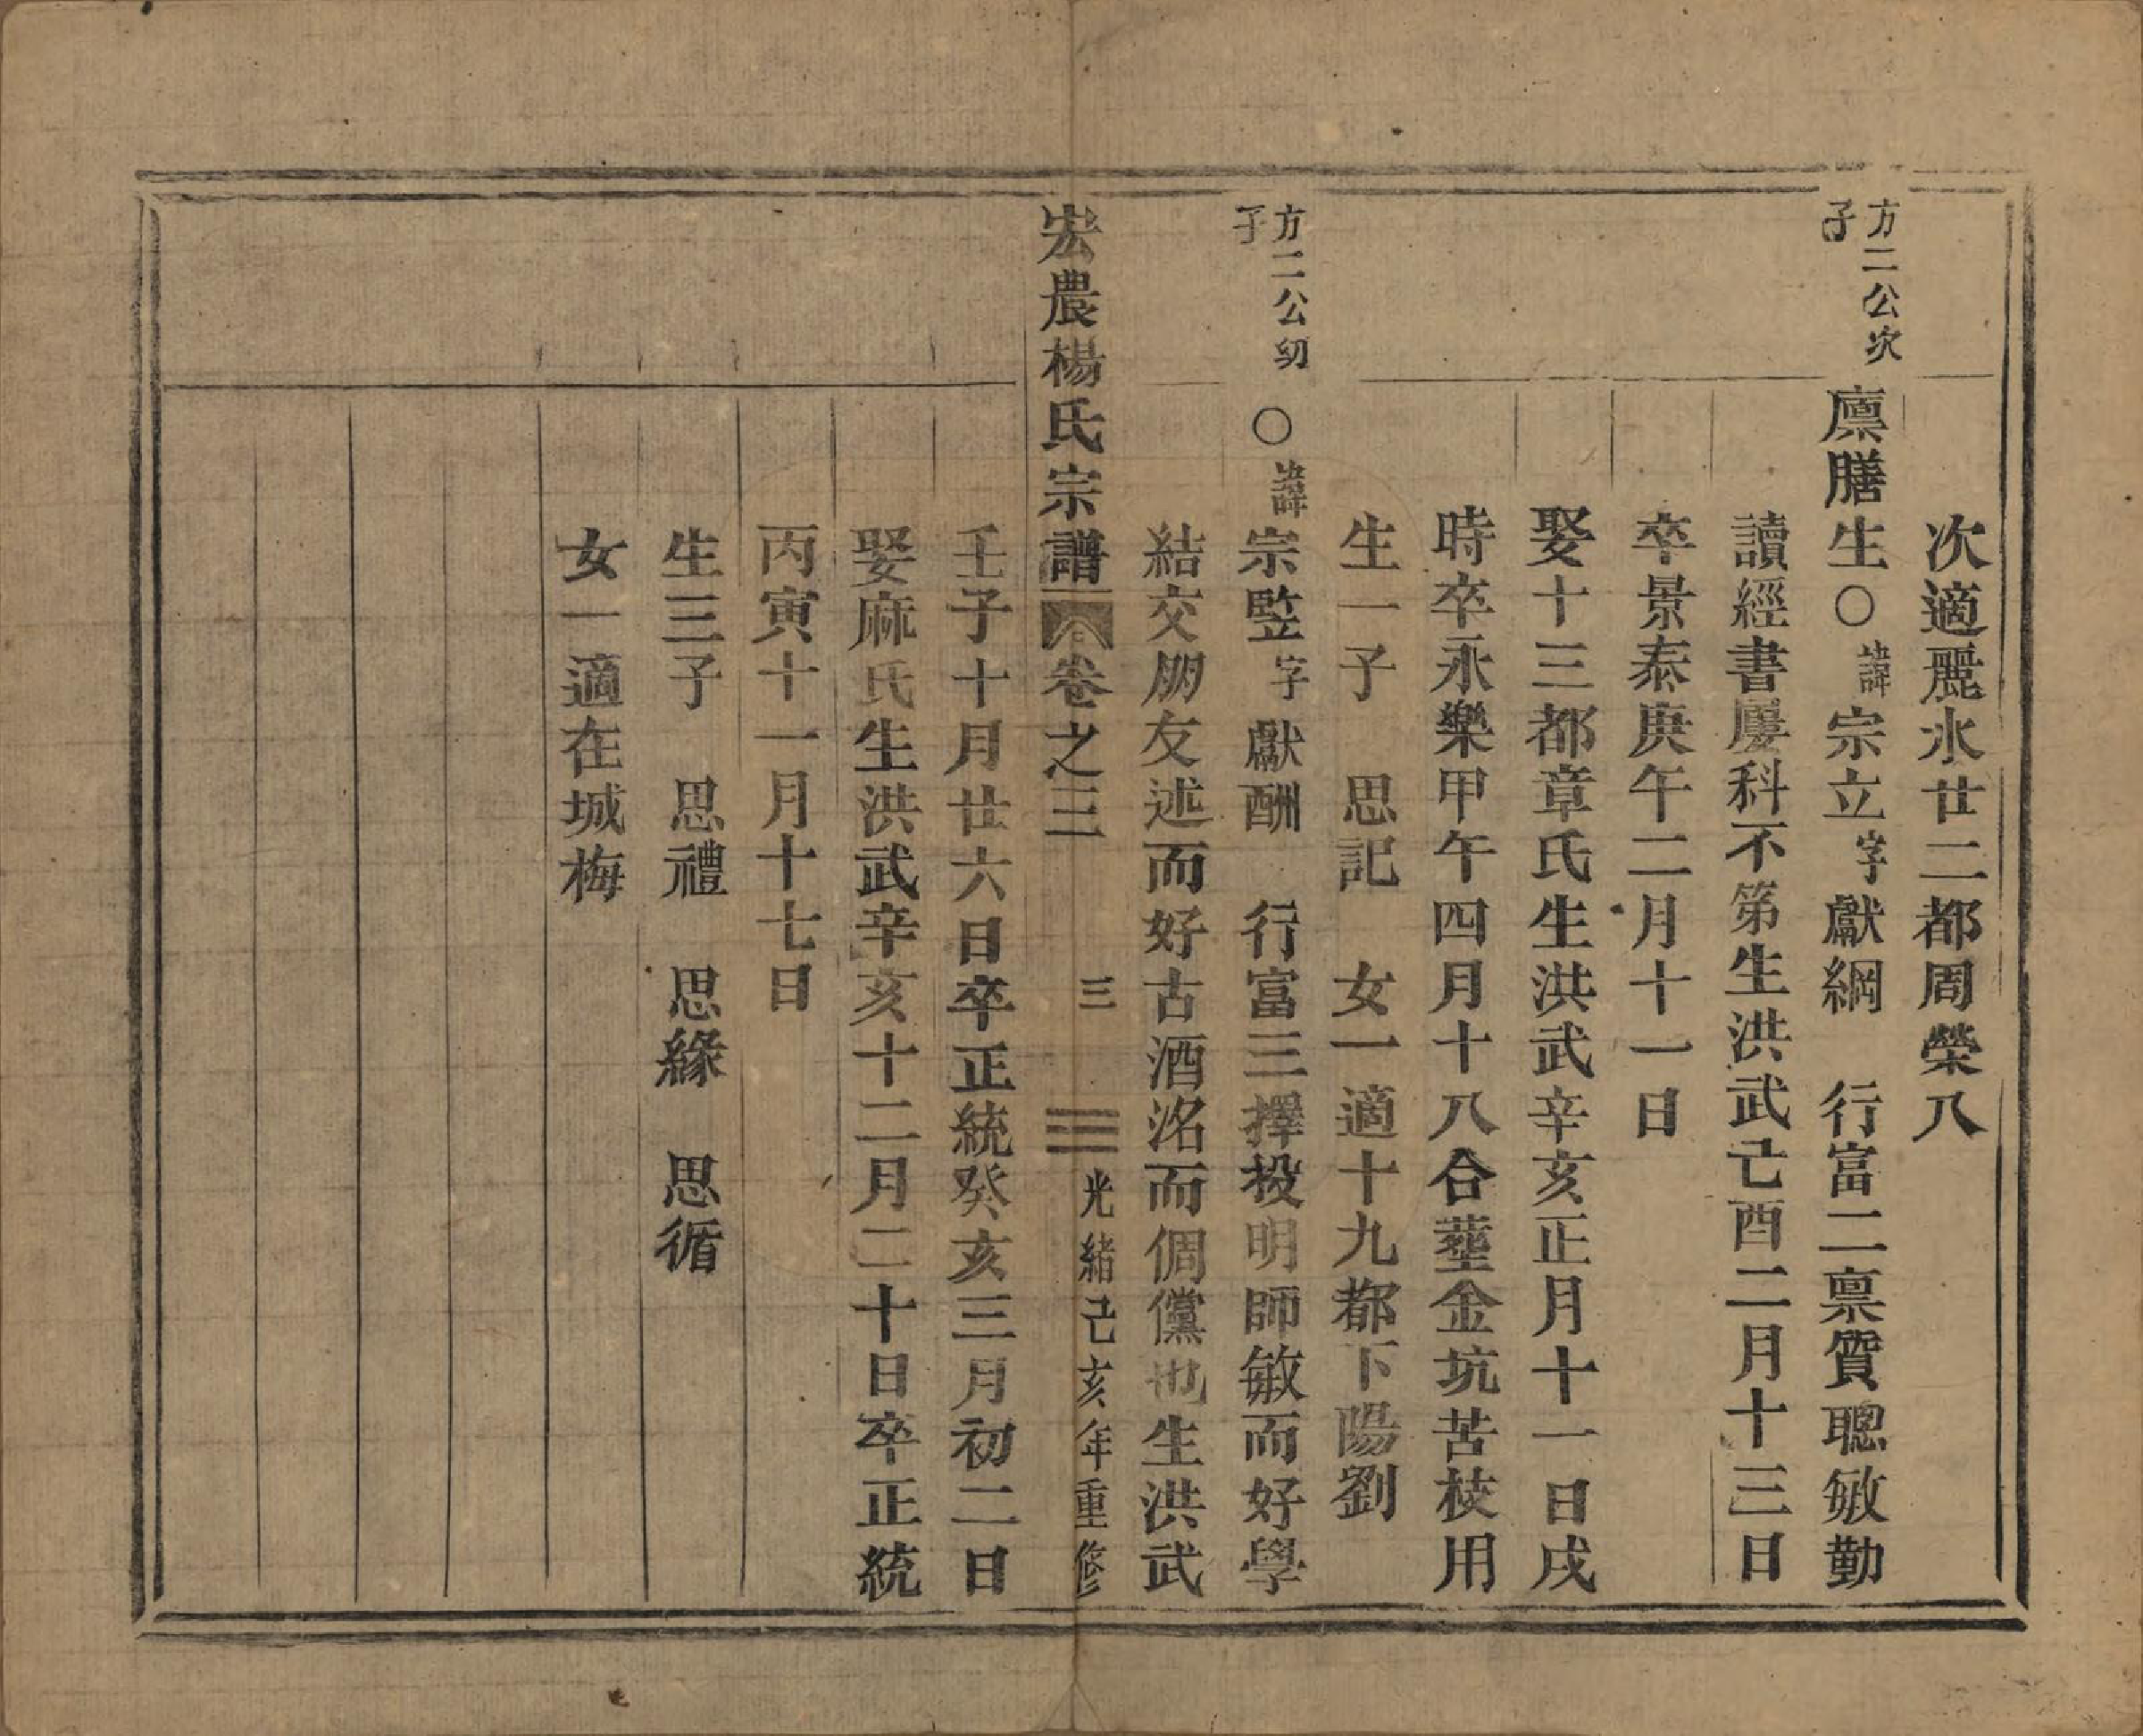 次適麗水廿二都周榮八
方二公次子
廪膳生○諱宗立字獻綱　行富二禀質聰敏勤
讀經書屢科不第生洪武己酉二月十三日
卒景泰庚午二月十一日
娶十三都章氏生洪武辛亥正月十一日戌
時卒永樂甲午四月十八合塟金坑苦桉用
生一子　思記　女一適十九都下陽劉
方二公幼子
○諱宗監字獻酬　行富三擇投明師敏而好學
結交朋友述而好古酒洺而倜儻也生洪武
宏農楊氏宗譜　卷之三　三　光緒己亥年重修
壬子十月廿六日卒正統癸亥三月初二日
娶麻氏生洪武辛亥十二月二十日卒正統
丙寅十一月十七日
生三子　思禮　思緣　思循
女一適在城梅